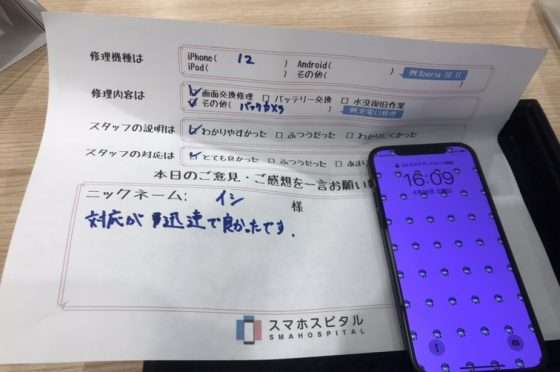 修理機種は
iPhone( 12 ) Android( )
iPod( ) その他( ) 例 Xperia 10 II
修理内容は
☑画面交換修理 □バッテリー交換 □水没復旧作業
☑その他( バックカメラ ) 例 充電口修理
スタッフの説明は ☑わかりやすかった □ふつうだった □わかりにくかった
スタッフの対応は ☑とても良かった □ふつうだった □あま
本日のご意見・ご感想を一言お願い
ニックネーム: イシ 様
対応が迅速で良かったです.
スマホスピタル
SMAHOSPITAL
16:09